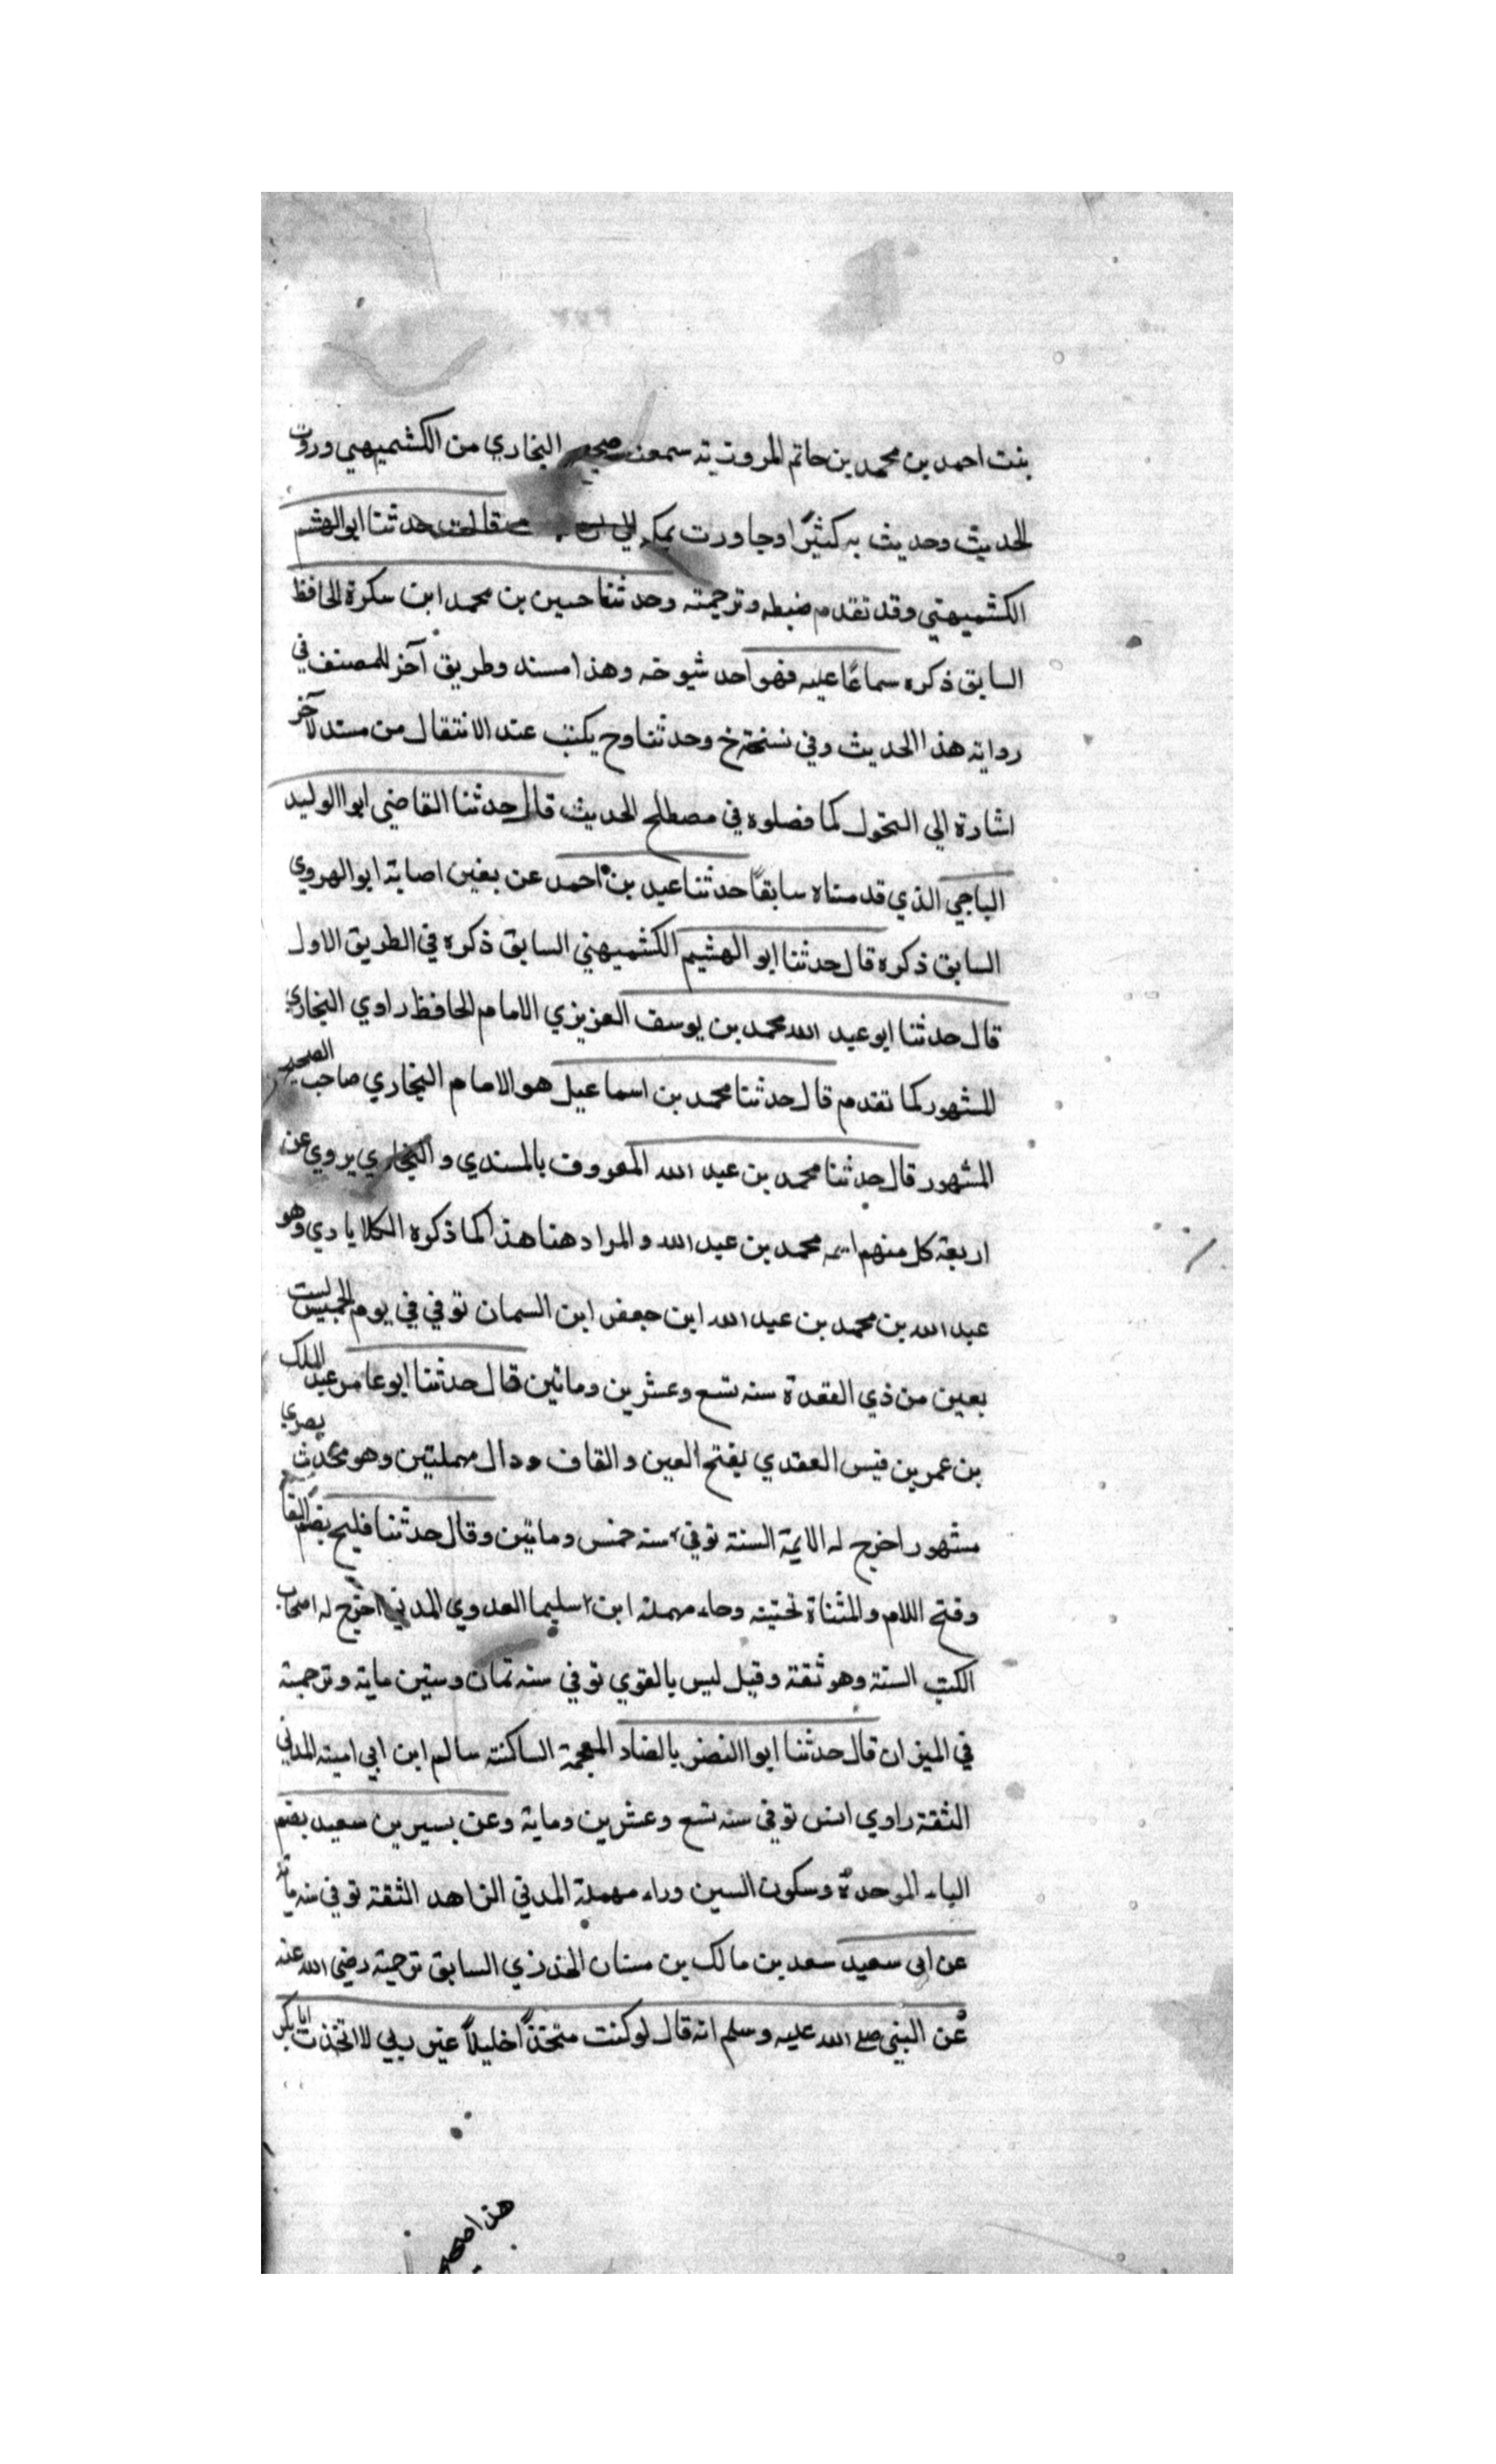 بنت احمد بن محمد بن حاتم المروزية سمعت صحيح البخاري من الكشميهني وروت
الحديث وحديث به كثيرًا وجاورت بمكه الي ان قالت حدثنا ابو الهشم
الكشميهني وقد تقدم ضبطه وترجمته وحدثنا حسين بن محمد ابن سكرة الحافظ
السابق ذكره سماعًا عليه فهو احد شيوخه وهذا مسند وطريق آخر للمصنف في
روايه هذا الحديث وفي نسخة خ وحدثنا وح يكتب عند الانتقال من مسند لآخر
اشارة الي التحول كما فصلوه في مصطلح الحديث قال حدثنا القاضي ابوا الوليد
الباجي الذي قدمناه سابقًا حدثنا عبد بن احمد عن بغين اصابة ابو الهروي
السابق ذكره قال حدثنا ابو الهشيم الكشميهني السابق ذكره في الطريق الاول
قال حدثنا ابو عبد الله محمد بن يوسف العزيزي الامام الحافظ راوي البخاري
المشهور كما تقدم قال حدثنا محمد بن اسماعيل هو الامام البخاري صاحب الصحيح
المشهور قال حدثنا محمد بن عبد الله المعروف بالمسندي والبخاري يروي عن
اربعة كل منهم اسمه محمد بن عبد الله والمراد هنا هذا كما ذكره الكلابادي وهو
عبد الله بن محمد بن عبد الله ابن جعفر ابن السمان توفي في يوم الخميس لست
بعين من ذي القعدة سنه تسع وعشرين وماتين قال حدثنا ابو عامر عبد الملك
بن عمر بن قيس العقدي بفتح العين والقاف ودال مهملتين وهو محدث بصري
مشهور اخرج له الايمة الستة توفي سنه خمس وماتين وقال حدثنا فليح بضم الفا
وفتح اللام والمثناة تحتيته وحاء مهملة ابن سليما العدوي المدني اخرج له اصحاب
الكتب الستة وهو ثقة وقيل ليس بالقوي توفي سنه ثمان وستين ماية وترجمته
في الميزان قال حدثنا ابوا النضر بالضاد المعجمة الساكنة سالم ابن ابي امية المدني
الثقة راوي انس توفي سنه تسع وعشرين وماية وعن بسير بن سعيد بضم
الباء الموحدة وسكون السين وراء مهملة المدني الزاهد الثقة توفي سنه ماية
عن ابى سعيد سعد بن مالك بن سنان الخدري السابق ترجمته رضي الله عنه
عن النبي صلى الله عليه وسلم انه قال لو كنت متخذًا خليلاً غير ربي لا اتخذت ابا بكر